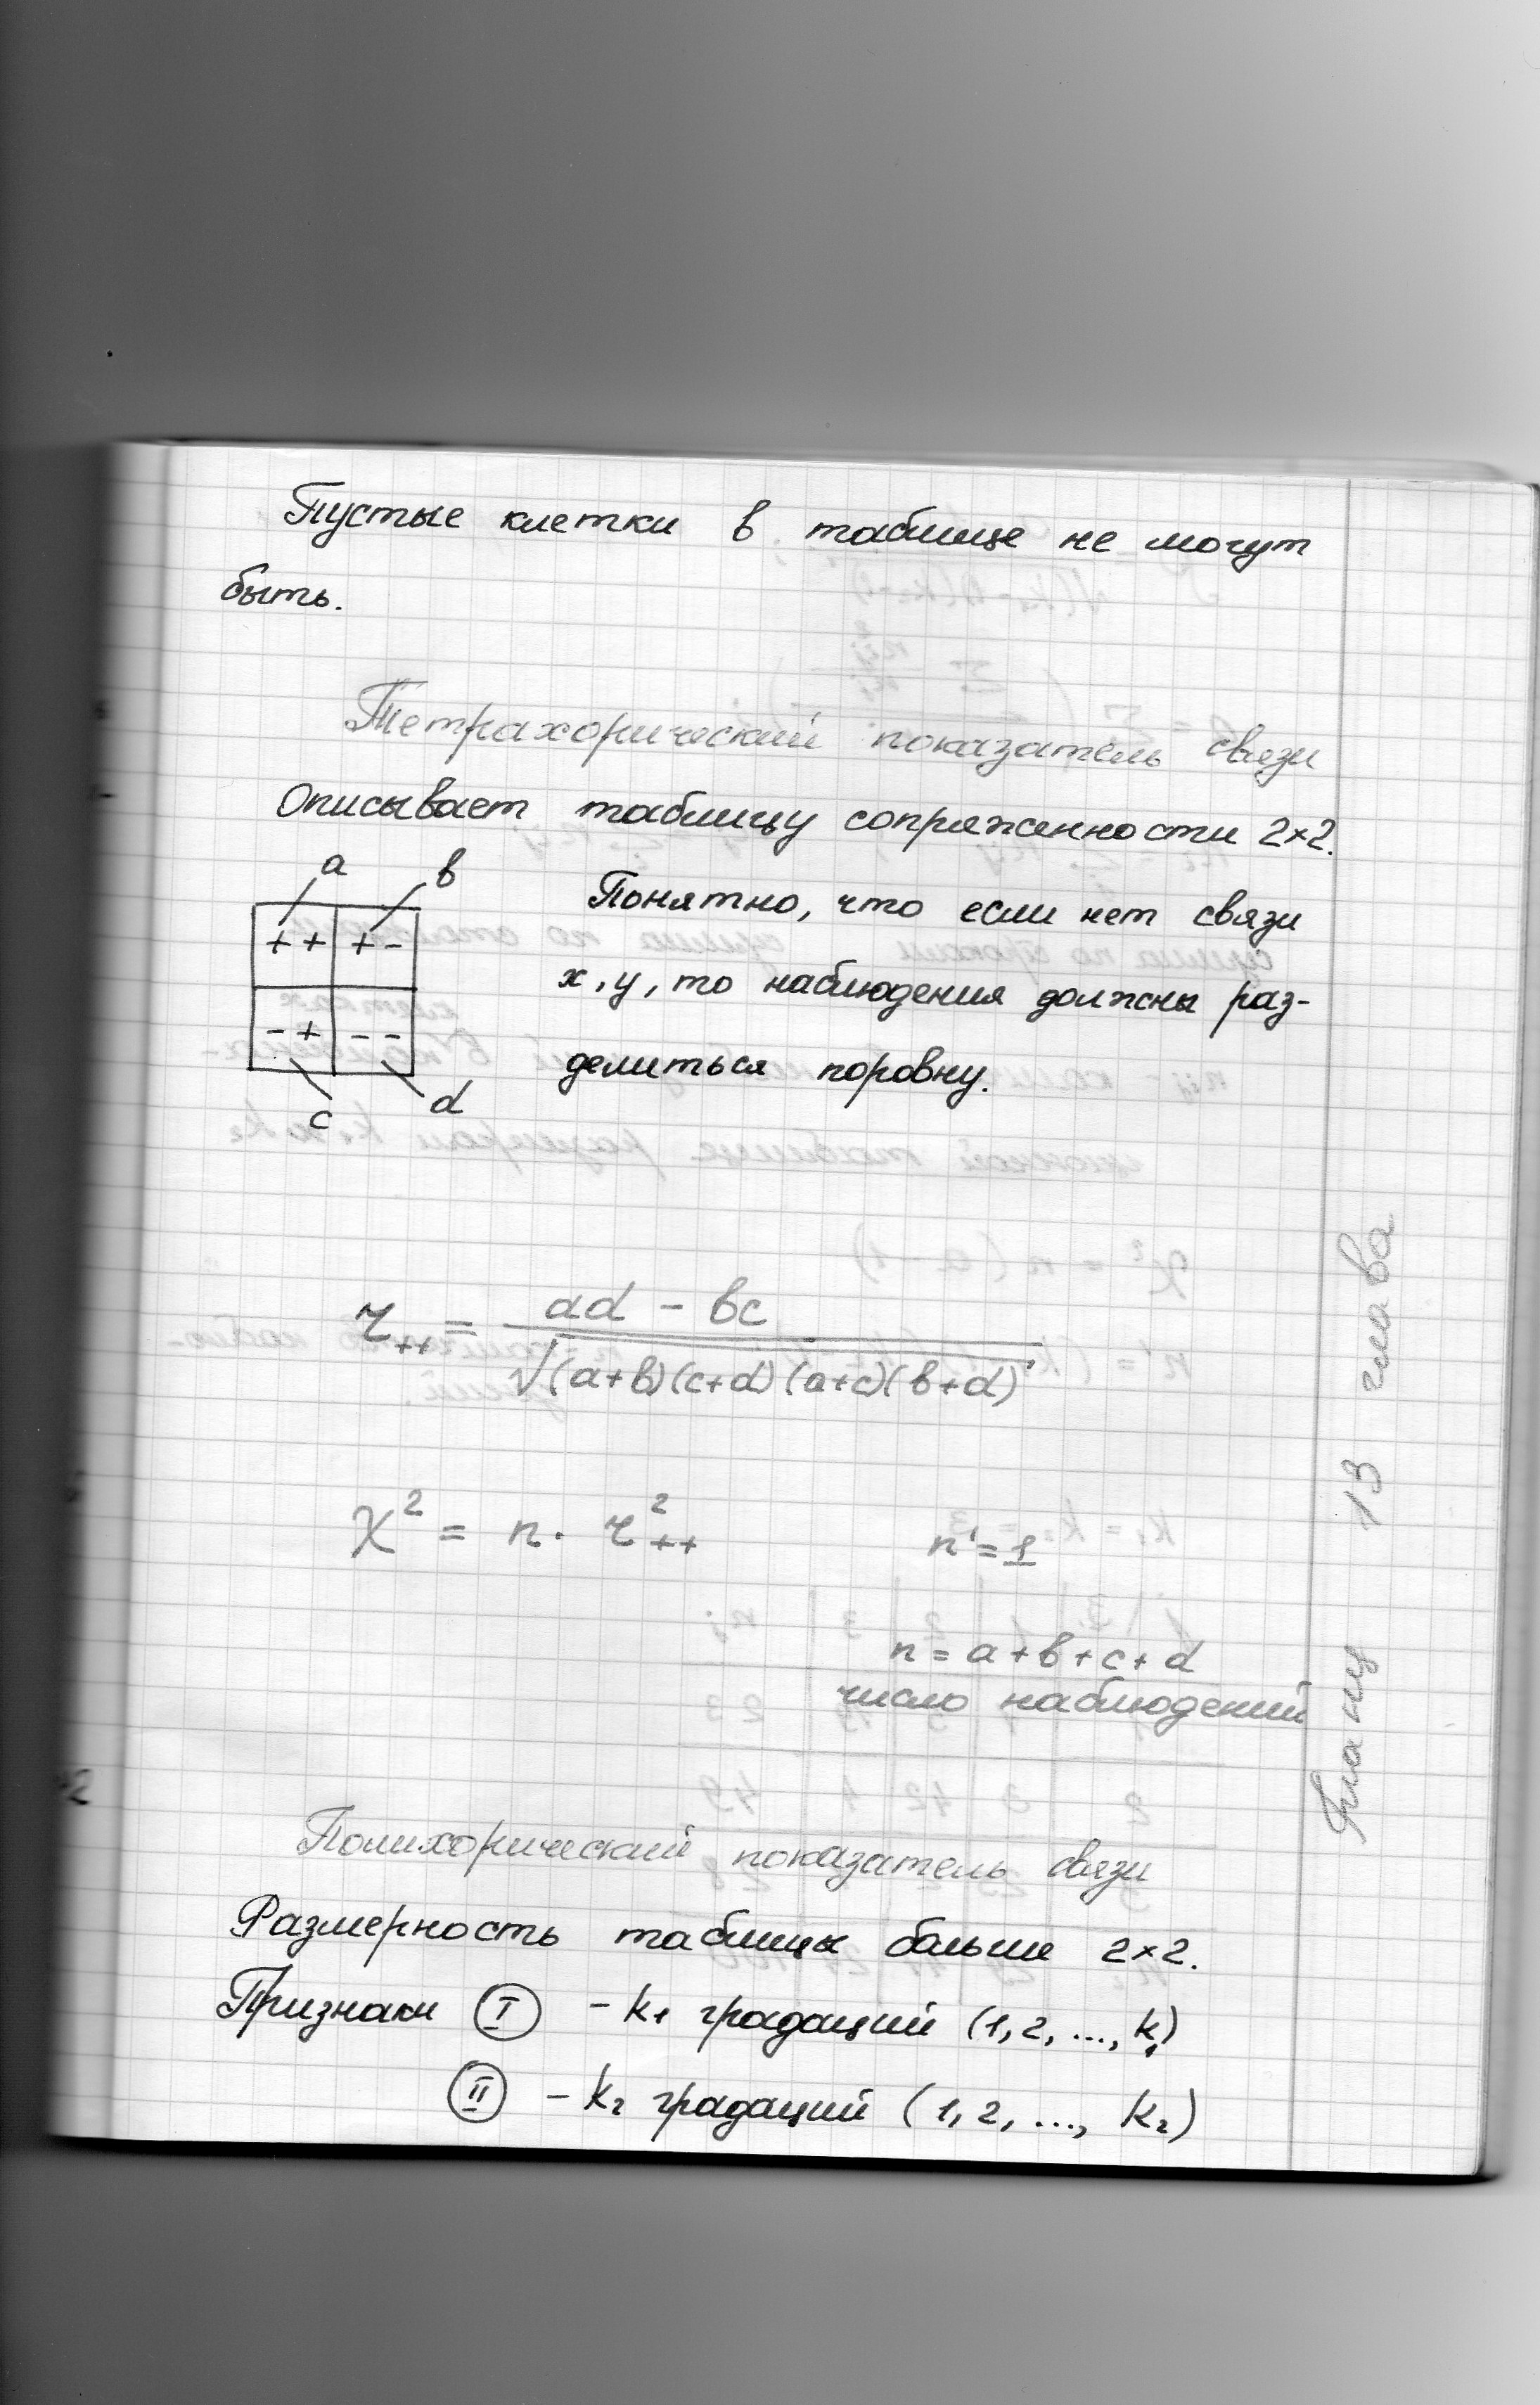 Пустые клетки в таблице не могут
быть.
Тетрахорический показатель связи
Описывает таблицу сопряженности 2×2.
a b
++ +-
-+ --
c d
Понятно, что если нет связи
x, y, то наблюдения должны раз-
делиться поровну.
r₊₊ = ad - bc / √(a+b)(c+d)(a+c)(b+d)
χ² = n · r²₊₊ n' = 1
n = a + b + c + d
число наблюдений
Полихорический показатель связи
Размерность таблицы больше 2×2.
Признаки I - k₁ градаций (1, 2, ..., k₁)
II - k₂ градаций (1, 2, ..., k₂)
13 глава